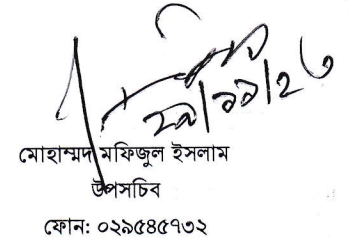 মোহাম্মদ মফিজুল ইসলাম
উপসচিব
ফোন: ০২৯৫৪৫৭৩২